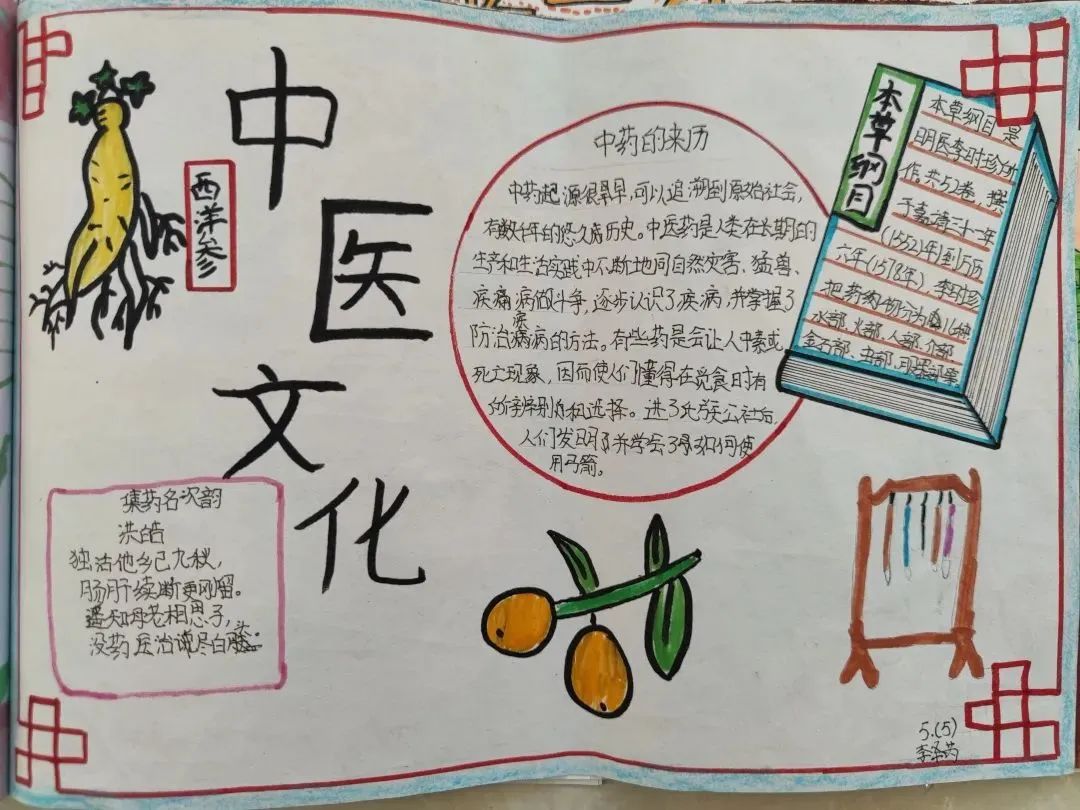 中医文化
西洋参
中药的来历
中药起源很早,可以追溯到原始社会,
有数千年的悠久历史。中医药是人类在长期的
生产和生活实践中不断地同自然灾害、猛兽、
疾痛病做斗争,逐步认识了疾病,并掌握了
防治疾病的方法。有些药是会让人中毒或
死亡现象,因而使人们懂得在觅食时有
所辨别和选择。进了氏族公社后,
人们发明了并学会了如何使
用弓箭。
本草纲目
本草纲目是
明医李时珍所
作。共52卷,撰
于嘉靖三十一年
(1552年)到万历
六年(1578年)李时珍
把药物分为
水部、火部、人部、介部
金石部、土部、服器部等
集药名次韵
洪皓
独活他乡已九秋,
肠肝续断更刚留。
遥知母老相思子,
没药医治尽白头。
5.(5)